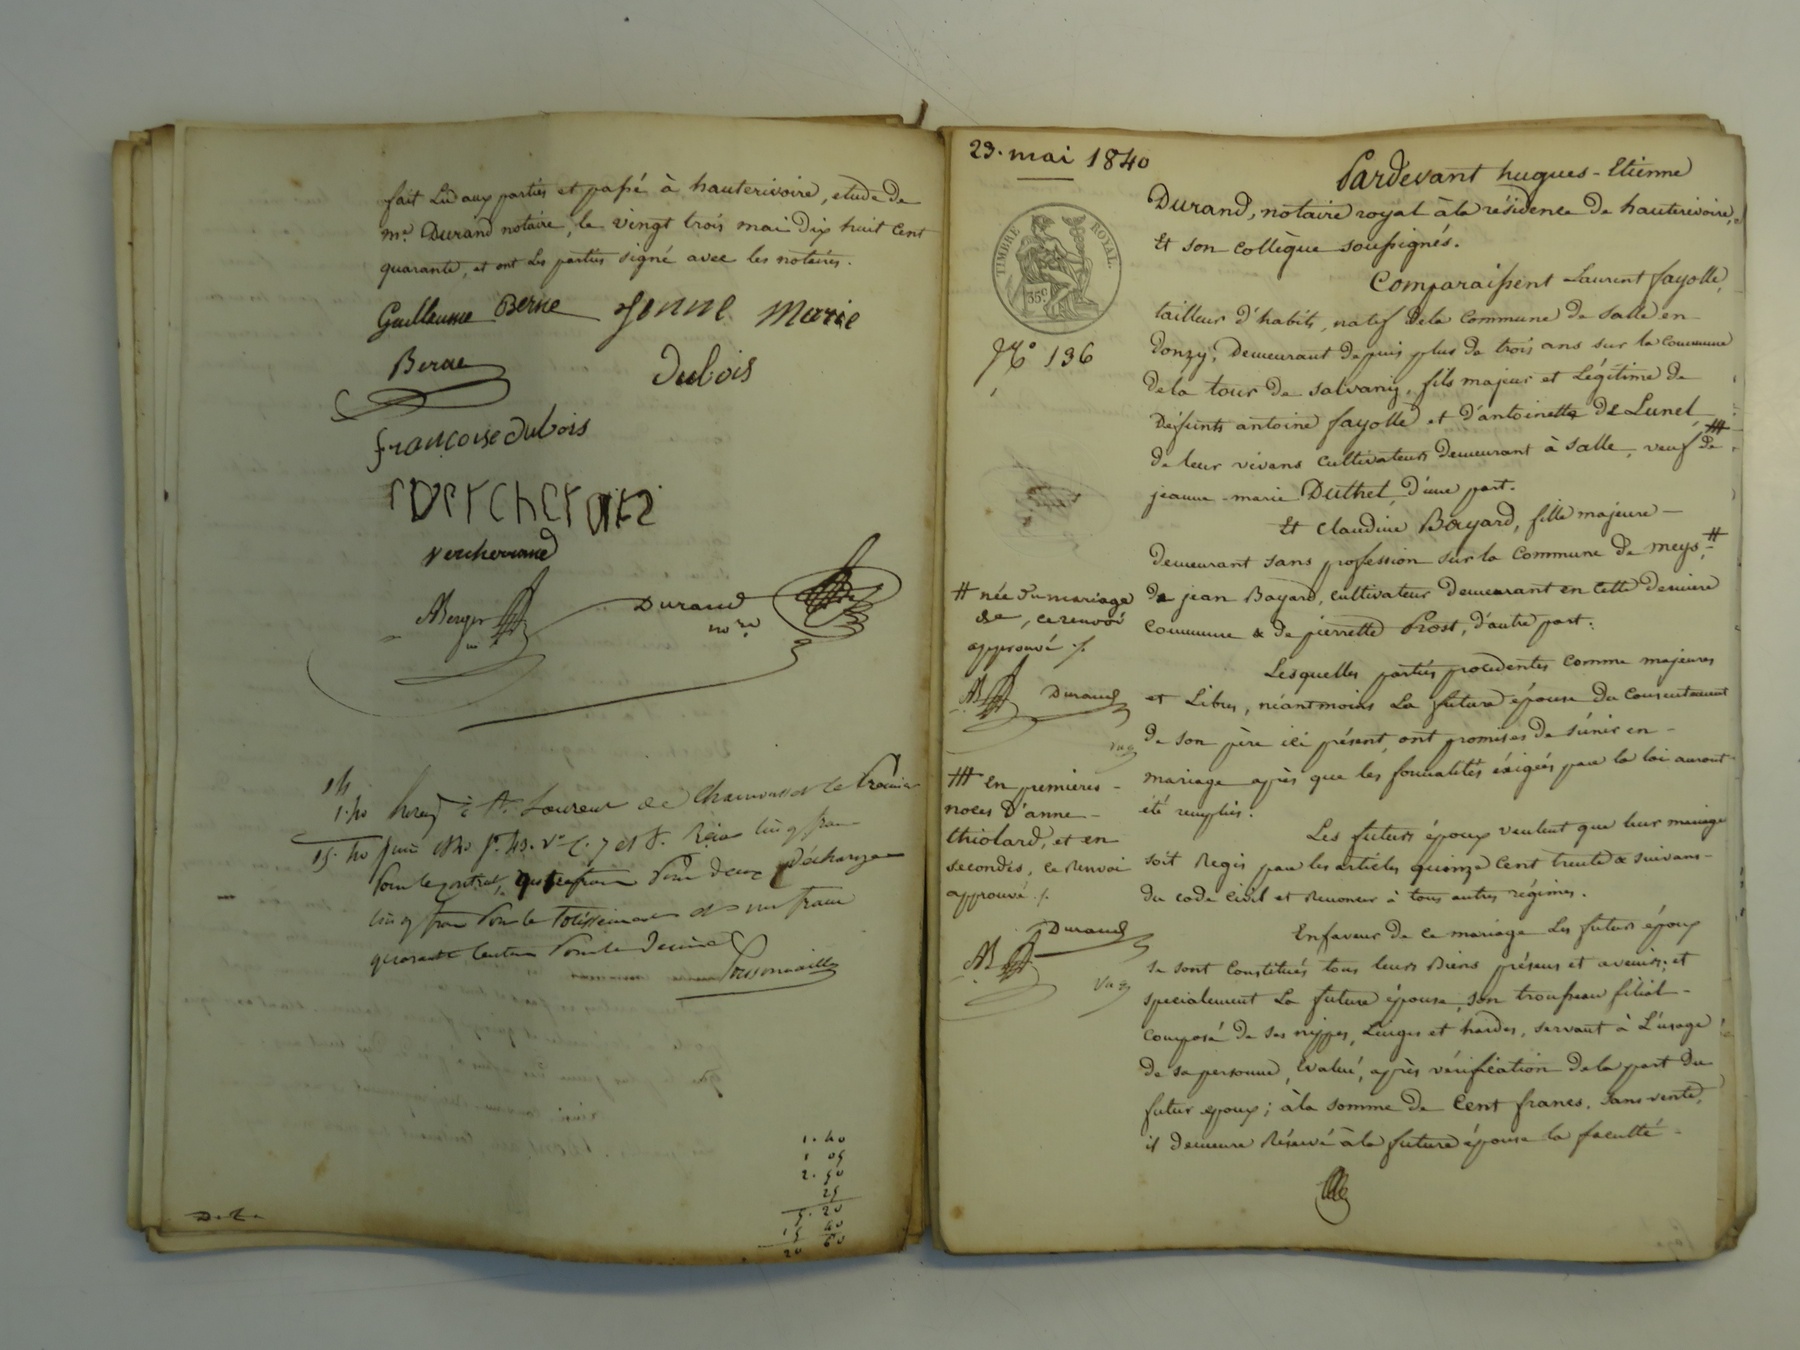 fait Lu aux parties et passé à hauterivoire, etude de
me. Durand notaire, le vingt trois mai Dix huit Cent
quarante, et ont Les parties signé avec les notaires.
Guillaume Berne Jenne Marie
Berne Dubois
françoise dubois
vercherand
ABerger Durand
nore
1.40
15.40
quarante Centimes Pour le Decime
1.40
1 05
2.50
25
5.20
15 40
20 60
23. mai 1840
TIMBRE ROYAL.
35c
No 136
Pardevant hugues-Etienne
Durand, notaire royal à la résidence De hauterivoire,
Et son collègue soussignés.
Comparaissent Laurent fayolle,
tailleur d'habits, natif De la Commune De Salle en
Donzy, Demeurant Depuis plus de trois ans sur la Commune
De la tour De Salvany, fils majeur et Légitime De
Défunts antoine fayolle et d'antoinette De Lunel
De leur vivans cultivateurs Demeurant à Salle, veuf De #
jeanne-marie Duthel, D'une part.
Et Claudine Bayard, fille majeure
Demeurant sans profession sur la Commune De meys, #
De jean Bayard, cultivateur Demeurant en Cette Derniere
Commune & De pierrette Prost, d'autre part.
# née Du mariage
De, ce renvoi
approuvé ./.
AB Durand
Lesquelles parties procedentes Comme majeures
et Libres, néantmoins La future épouse Du Consentement
De son père ici présent, ont promises De s'unir en
mariage après que les formalités éxigées par la loi auront
été remplies.
# En premières
noces D'anne
thiolard, et en
secondes, ce Renvoi
approuvé ./.
AB Durand
Les futurs époux veulent que leur mariage
soit Regis par les articles quinze Cent trente & suivans
Du code Civil et Renoncer à tous autres régimes.
En faveur De ce mariage Les futurs époux
se sont Constitués tous leurs Biens présens et avenirs; et
specialement La future épouse, son trousseau filial
Composé De ses nippes, Linges et hardes, servant à L'usage
De sa personne, Evalué, après vérification De la part Du
futur epoux; à la somme De Cent francs, Sans vente,
il Demeure Réservé à la future épouse la faculté